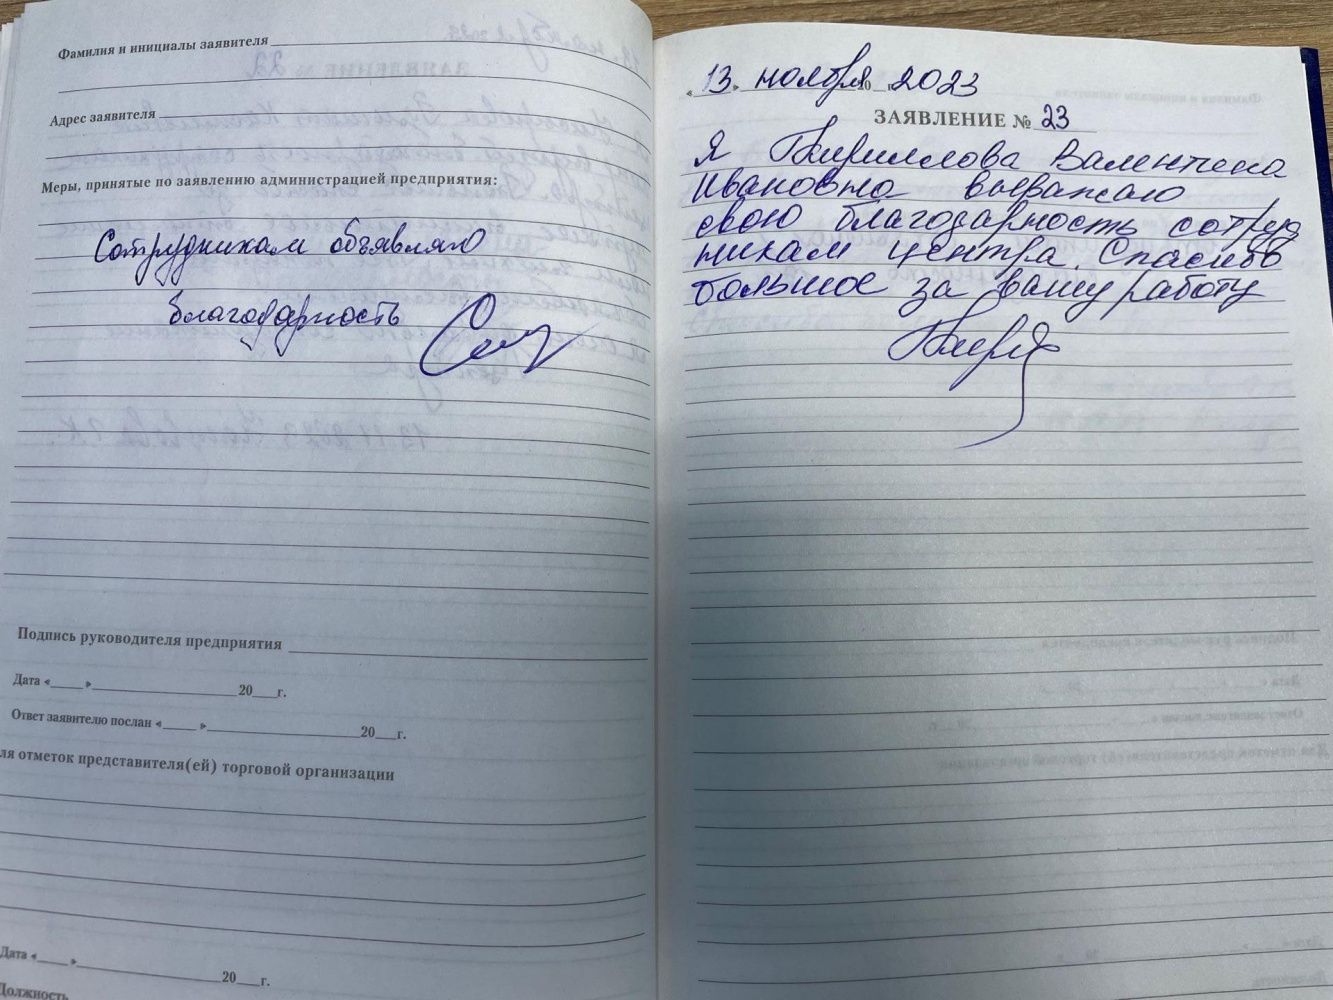 Фамилия и инициалы заявителя
Адрес заявителя
Меры, принятые по заявлению администрацией предприятия:
Сотрудникам объявляю
благодарность
Подпись руководителя предприятия
Дата «____»____20___г.
Ответ заявителю послан «____»____20___г.
ля отметок представителя(ей) торговой организации
Дата «____»____20___г.
Должность
«13» ноября 2023
ЗАЯВЛЕНИЕ № 23
Я Кириллова Валентина
Ивановна выражаю
свою благодарность сотруд
никам центра. Спасибо
большое за вашу работу